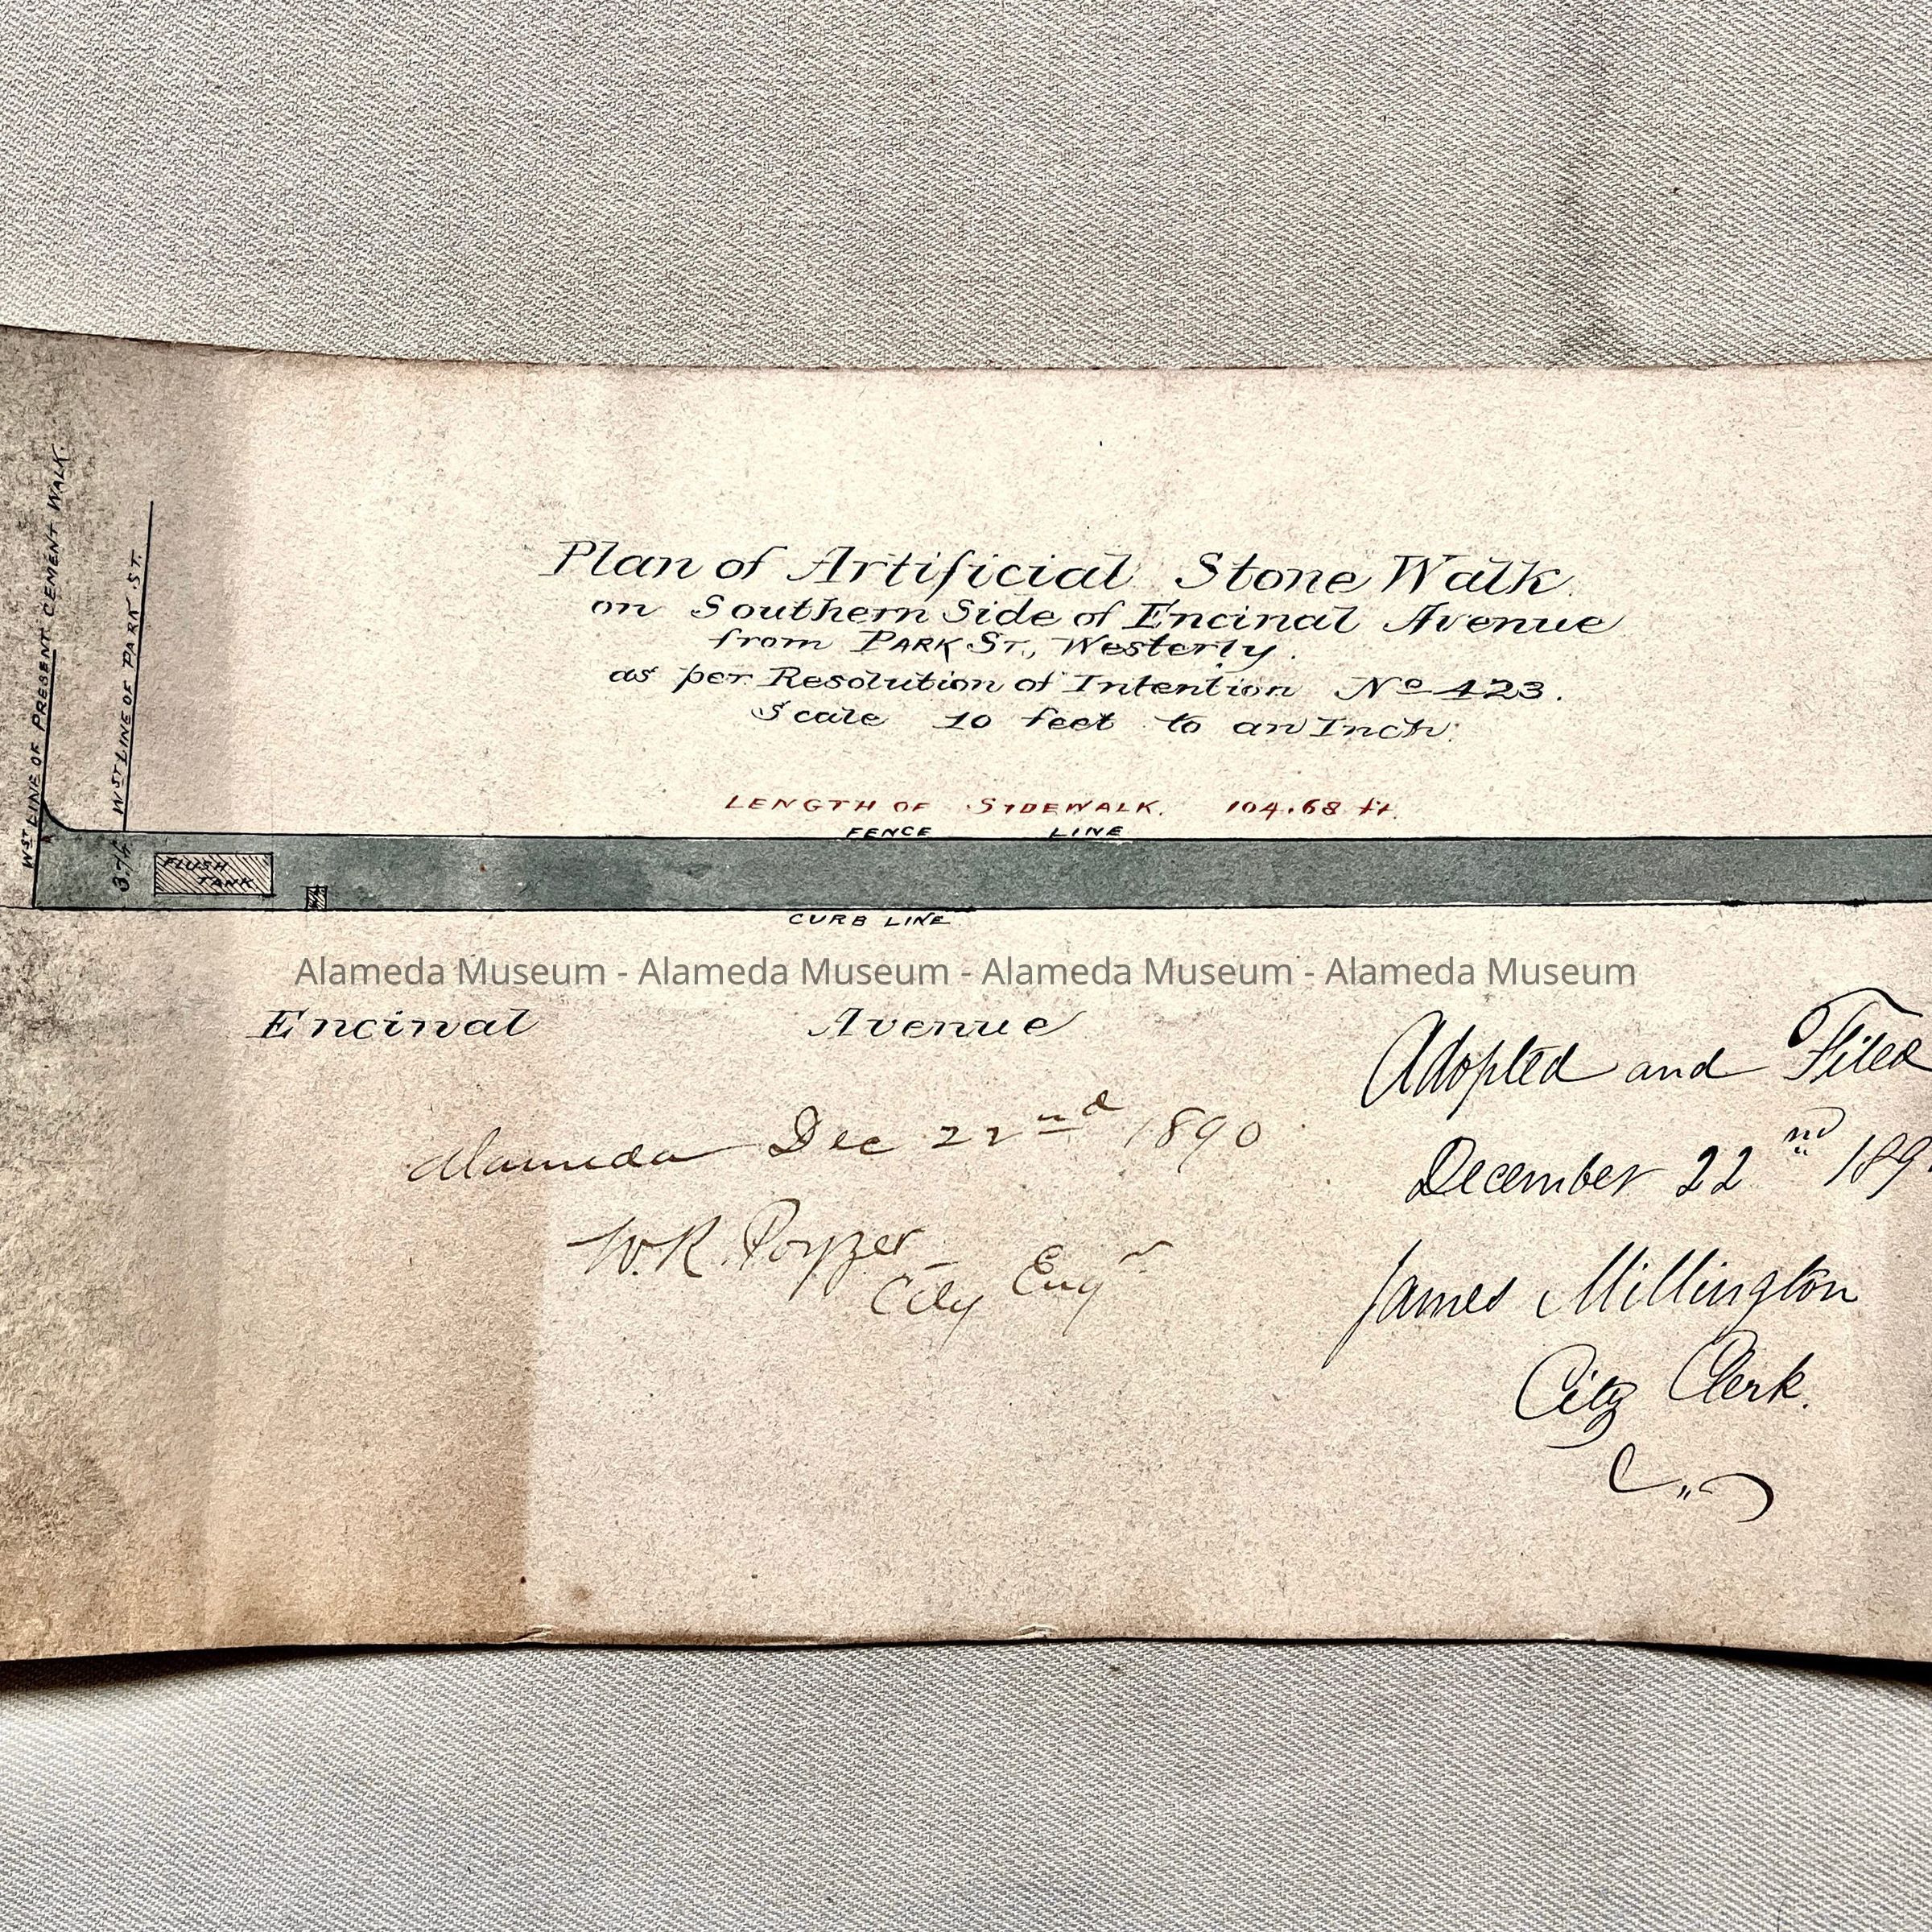 Plan of Artificial Stone Walk
on Southern Side of Encinal Avenue
from PARK ST., Westerly.
as per Resolution of Intention No 423.
Scale 10 feet to an Inch.
LENGTH OF SIDEWALK. 104.68 ft.
FENCE LINE
WST LINE OF PRESENT CEMENT WALK.
WST LINE OF PARK ST.
FLUSH
TANK
CURB LINE
Alameda Museum - Alameda Museum - Alameda Museum - Alameda Museum
Encinal Avenue
Alameda Dec 22nd 1890.
W.R. Poyzer
City Engr
Adopted and Filed
December 22nd 189
James Millington
City Clerk.